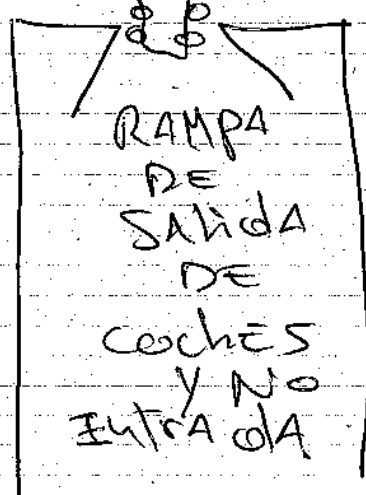 RAMPA
DE
SAlidA
DE
cochES
y No
EntrA dA